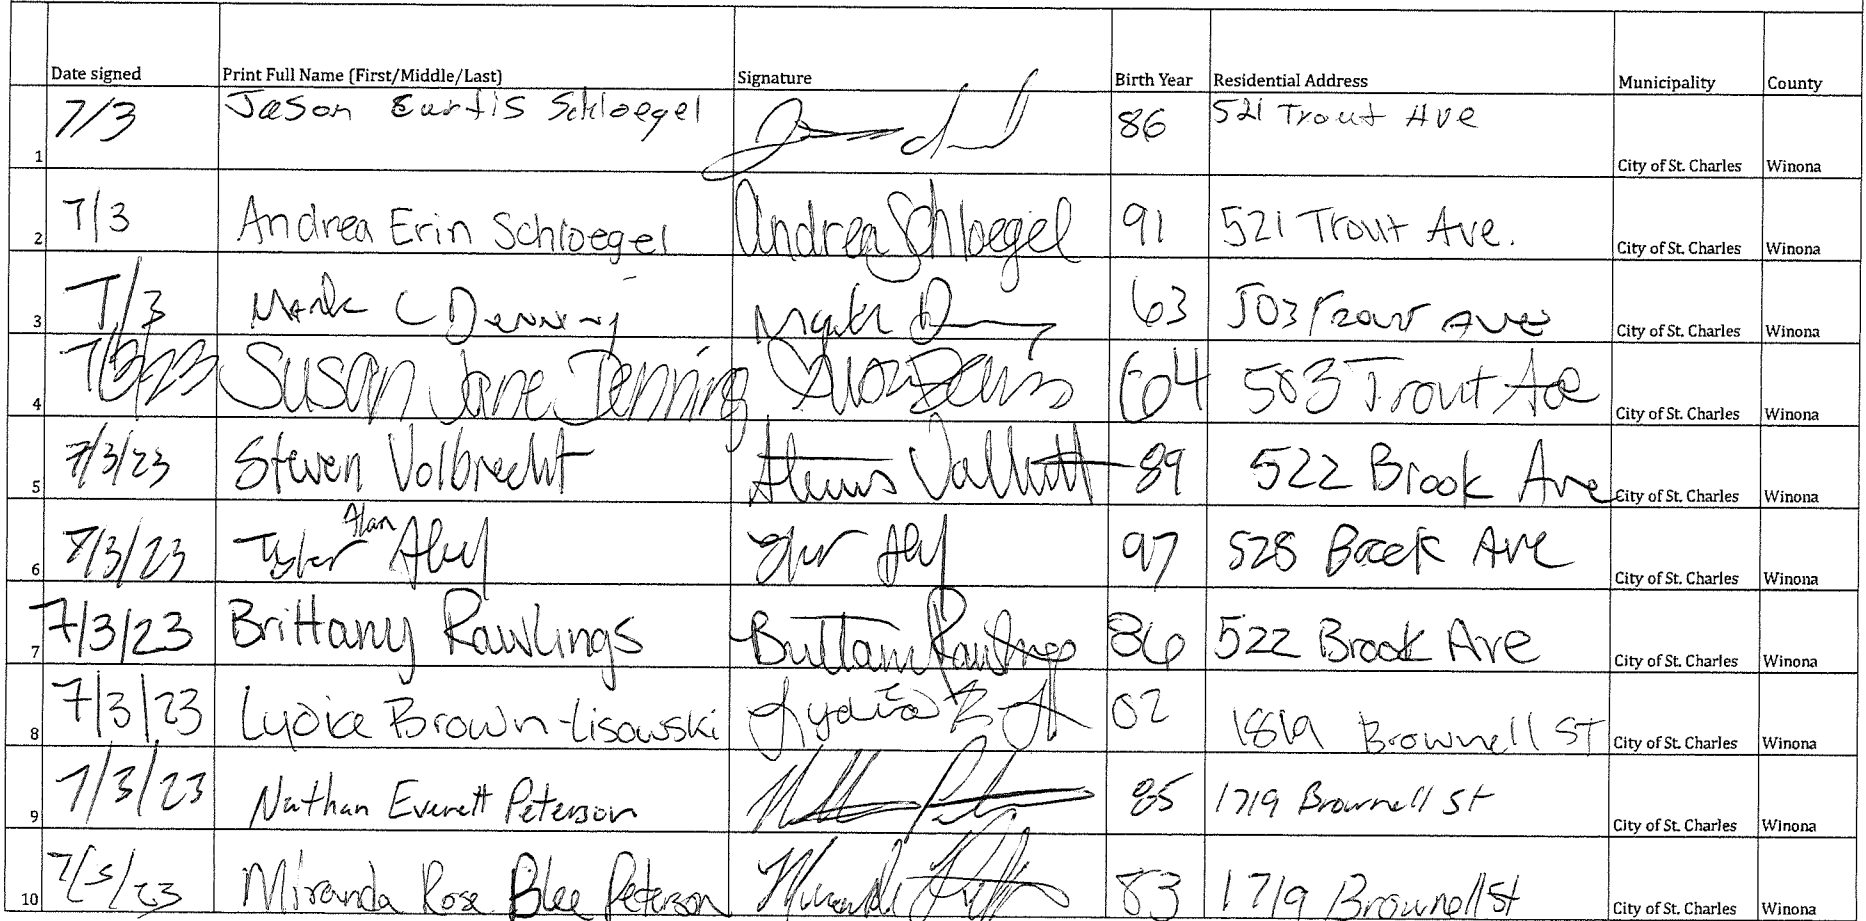 Date signed Print Full Name (First/Middle/Last) Signature Birth Year Residential Address Municipality County
1 7/3 Jason Curtis Schloegel 86 521 Trout Ave City of St. Charles Winona
2 7/3 Andrea Erin Schloegel Andrea Schloegel 91 521 Trout Ave. City of St. Charles Winona
3 7/3 Mark C Denning Mark D 63 503 Trout Ave City of St. Charles Winona
4 7/3/23 Susan Jane Denning 64 503 Trout Ave City of St. Charles Winona
5 7/3/23 Steven Volbrecht 89 522 Brook Ave City of St. Charles Winona
6 7/3/23 Tyler Alan 97 528 Brook Ave City of St. Charles Winona
7 7/3/23 Brittany Rawlings Brittany Rawlings 86 522 Brook Ave City of St. Charles Winona
8 7/3/23 Lydia Brown-Lisowski Lydia B 02 1819 Brownell ST City of St. Charles Winona
9 7/3/23 Nathan Everett Peterson 85 1719 Brownell St City of St. Charles Winona
10 Miranda Rose Blee Peterson 83 1719 Brownell St City of St. Charles Winona